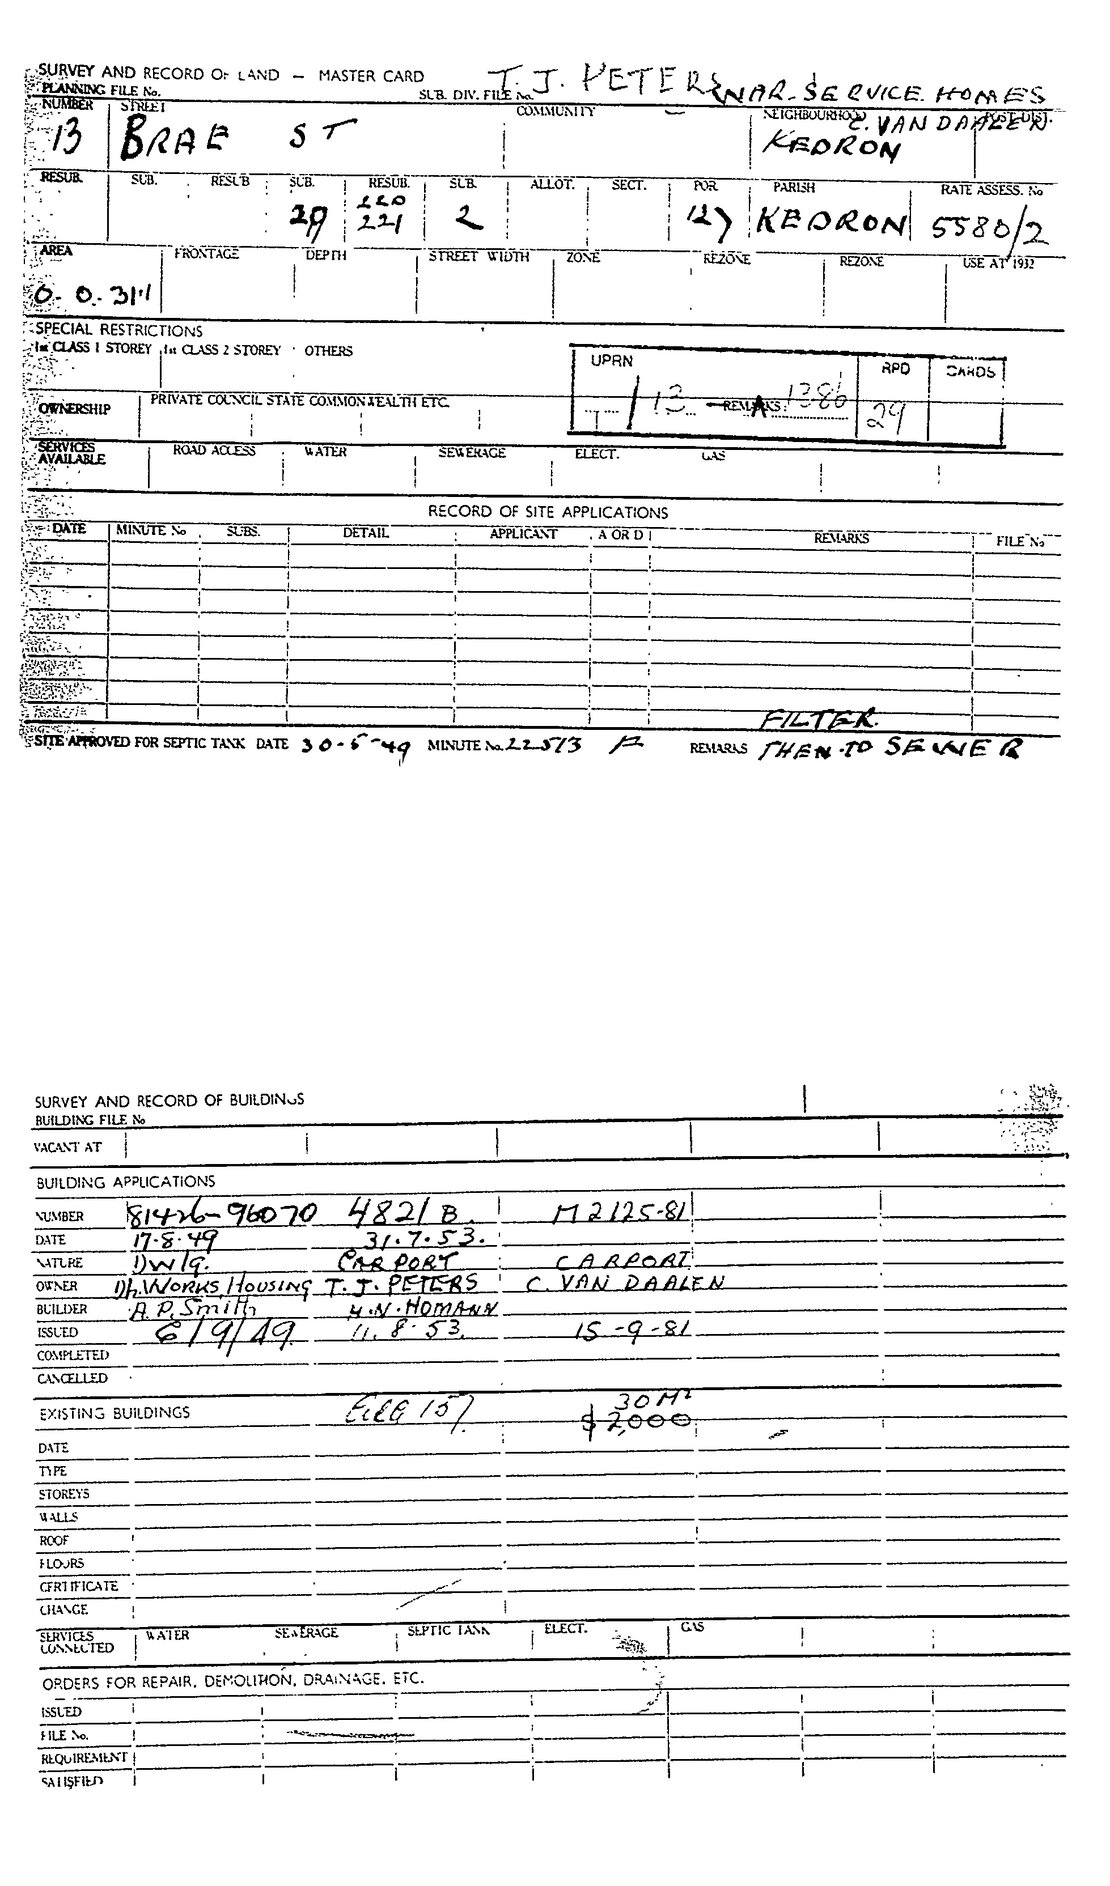 SURVEY AND RECORD OF LAND – MASTER CARD T. J. PETERS
PLANNING FILE No. SUB. DIV. FILE No. WAR-SERVICE HOMES
NUMBER STREET COMMUNITY NEIGHBOURHOOD POST DIST.
C. VAN DAALEN
13 BRAE ST KEDRON
RESUB. SUB. RESUB SUB. RESUB. SUB. ALLOT. SECT. POR. PARISH RATE ASSESS. No
220
29 221 2 127 KEDRON 5580/2
AREA FRONTAGE DEPTH STREET WIDTH ZONE REZONE REZONE USE AT 1932
0. 0. 31.1
SPECIAL RESTRICTIONS
1st CLASS 1 STOREY 1st CLASS 2 STOREY OTHERS
UPRN RPD CARDS
PRIVATE COUNCIL STATE COMMONWEALTH ETC.
OWNERSHIP 13 REMARKS 1386 29
SERVICES AVAILABLE ROAD ACCESS WATER SEWERAGE ELECT. GAS
RECORD OF SITE APPLICATIONS
DATE MINUTE No SUBS. DETAIL APPLICANT A OR D REMARKS FILE No
FILTER.
SITE APPROVED FOR SEPTIC TANK DATE 30-5-49 MINUTE No. 22513 REMARKS THEN TO SEWER
SURVEY AND RECORD OF BUILDINGS
BUILDING FILE No
VACANT AT
BUILDING APPLICATIONS
NUMBER 81426-96070 4821 B. M2125-81
DATE 17.8.49 31.7.53.
NATURE Dwlg. CARPORT CARPORT
OWNER Dh. Works, Housing T. J. PETERS C. VAN DAALEN
BUILDER A. P. Smith H. N. HOMANN
ISSUED 6/9/49 11.8.53. 15-9-81
COMPLETED
CANCELLED
30 M²
EXISTING BUILDINGS $2,000
DATE
TYPE
STOREYS
WALLS
ROOF
FLOORS
CERTIFICATE
CHANGE
SERVICES CONNECTED WATER SEWERAGE SEPTIC TANK ELECT. GAS
ORDERS FOR REPAIR, DEMOLITION, DRAINAGE, ETC.
ISSUED
FILE No.
REQUIREMENT
SATISFIED